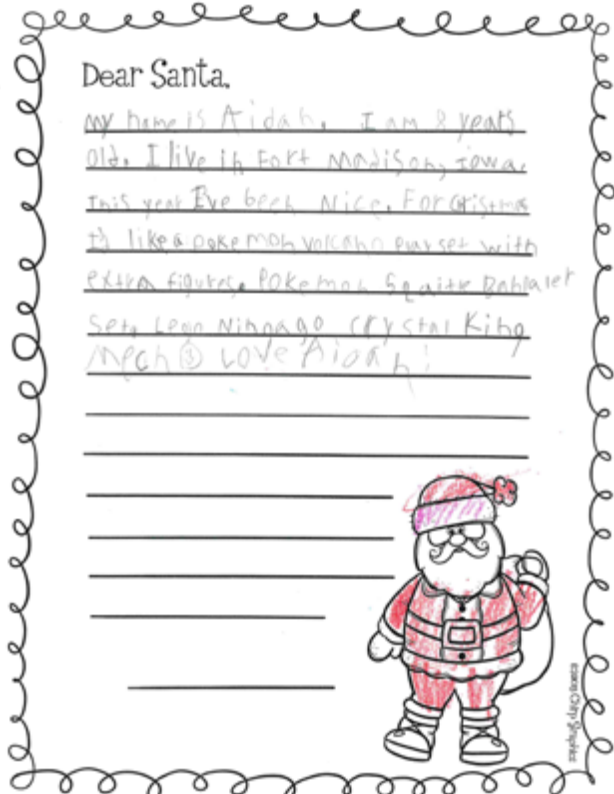 Dear Santa,
My name is Aidan. I am 8 years
old. I live in Fort Madison, Iowa.
This year I've been Nice. For Cristmas
I'd like a pokemon volcano playset with
extra figures. Pokemon Squirtle
Set, Lego Ninjago Crystal King
Mech Love Aidan!